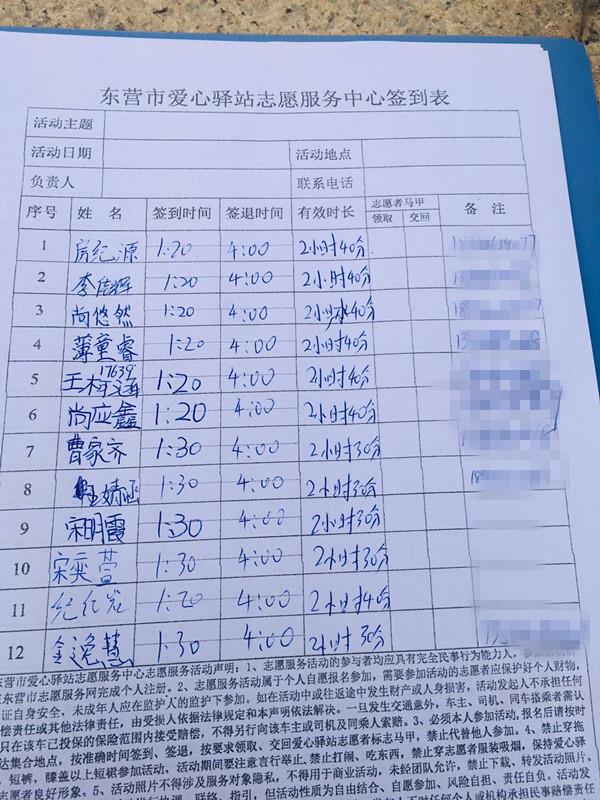 东营市爱心驿站志愿服务中心签到表
活动主题
活动日期 活动地点
负责人 联系电话
序号 姓名 签到时间 签退时间 有效时长 志愿者马甲 领取 交回 备注
1 房纪源 1:20 4:00 2小时40分
2 李信辉 1:20 4:00 2小时40分
3 尚悠然 1:20 4:00 2小时40分
4 薄童睿 1:20 4:00 2小时40分
17639
5 王柯涵 1:20 4:00 2小时40分
6 尚应鑫 1:20 4:00 2小时40分
7 曹家齐 1:30 4:00 2小时30分
8 婧涵 1:30 4:00 2小时30分
9 宋明霞 1:30 4:00 2小时30分
10 宋奕萱 1:30 4:00 2小时30分
11 纪红岩 1:20 4:00 2小时40分
12 金逸慧 1:30 4:00 2小时30分
东营市爱心驿站志愿服务中心志愿服务活动声明：1、志愿服务活动的参与者均应具有完全民事行为能力人，
东营市志愿服务网完成个人注册。2、志愿服务活动属于个人自愿报名参加，需要参加活动的志愿者应保护好个人财物，
证自身安全，未成年人应在监护人的监护下参加。如在活动中或往返途中发生财产或人身损害，活动发起人不承担任何
偿责任或其他法律责任，由受损人依据法律规定和本声明依法解决。一旦发生交通意外，车主、司机、同车搭乘者需认
只在该车已投保的保险范围内接受赔偿，不得另行向该车主或司机及同乘人索赔。3、必须本人参加活动，报名后请按时
达集合地点，按准确时间签到、签退，按要求领取、交回爱心驿站志愿者标志马甲，禁止代替他人参加。4、禁止穿拖
、短裤，膝盖以上短裙参加活动，活动期间要注意言行举止、禁止打闹、吃东西，禁止穿志愿者服装吸烟，保持爱心驿
志愿者良好形象。5、活动照片不得涉及服务对象隐私，不得用于商业活动，未经团队允许，禁止下载、转发活动照片。
指引，但活动性质为自由结合、自愿参加、风险自担、责任自负。活动发